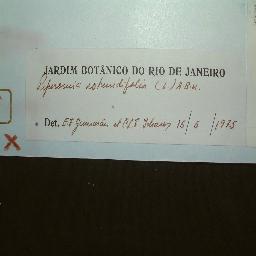 JARDIM BOTÂNICO DO RIO DE JANEIRO
Peperomia rotundifolia (L) H.B.K.
Det. E F Guimarães et 16 / 6 / 1975
X